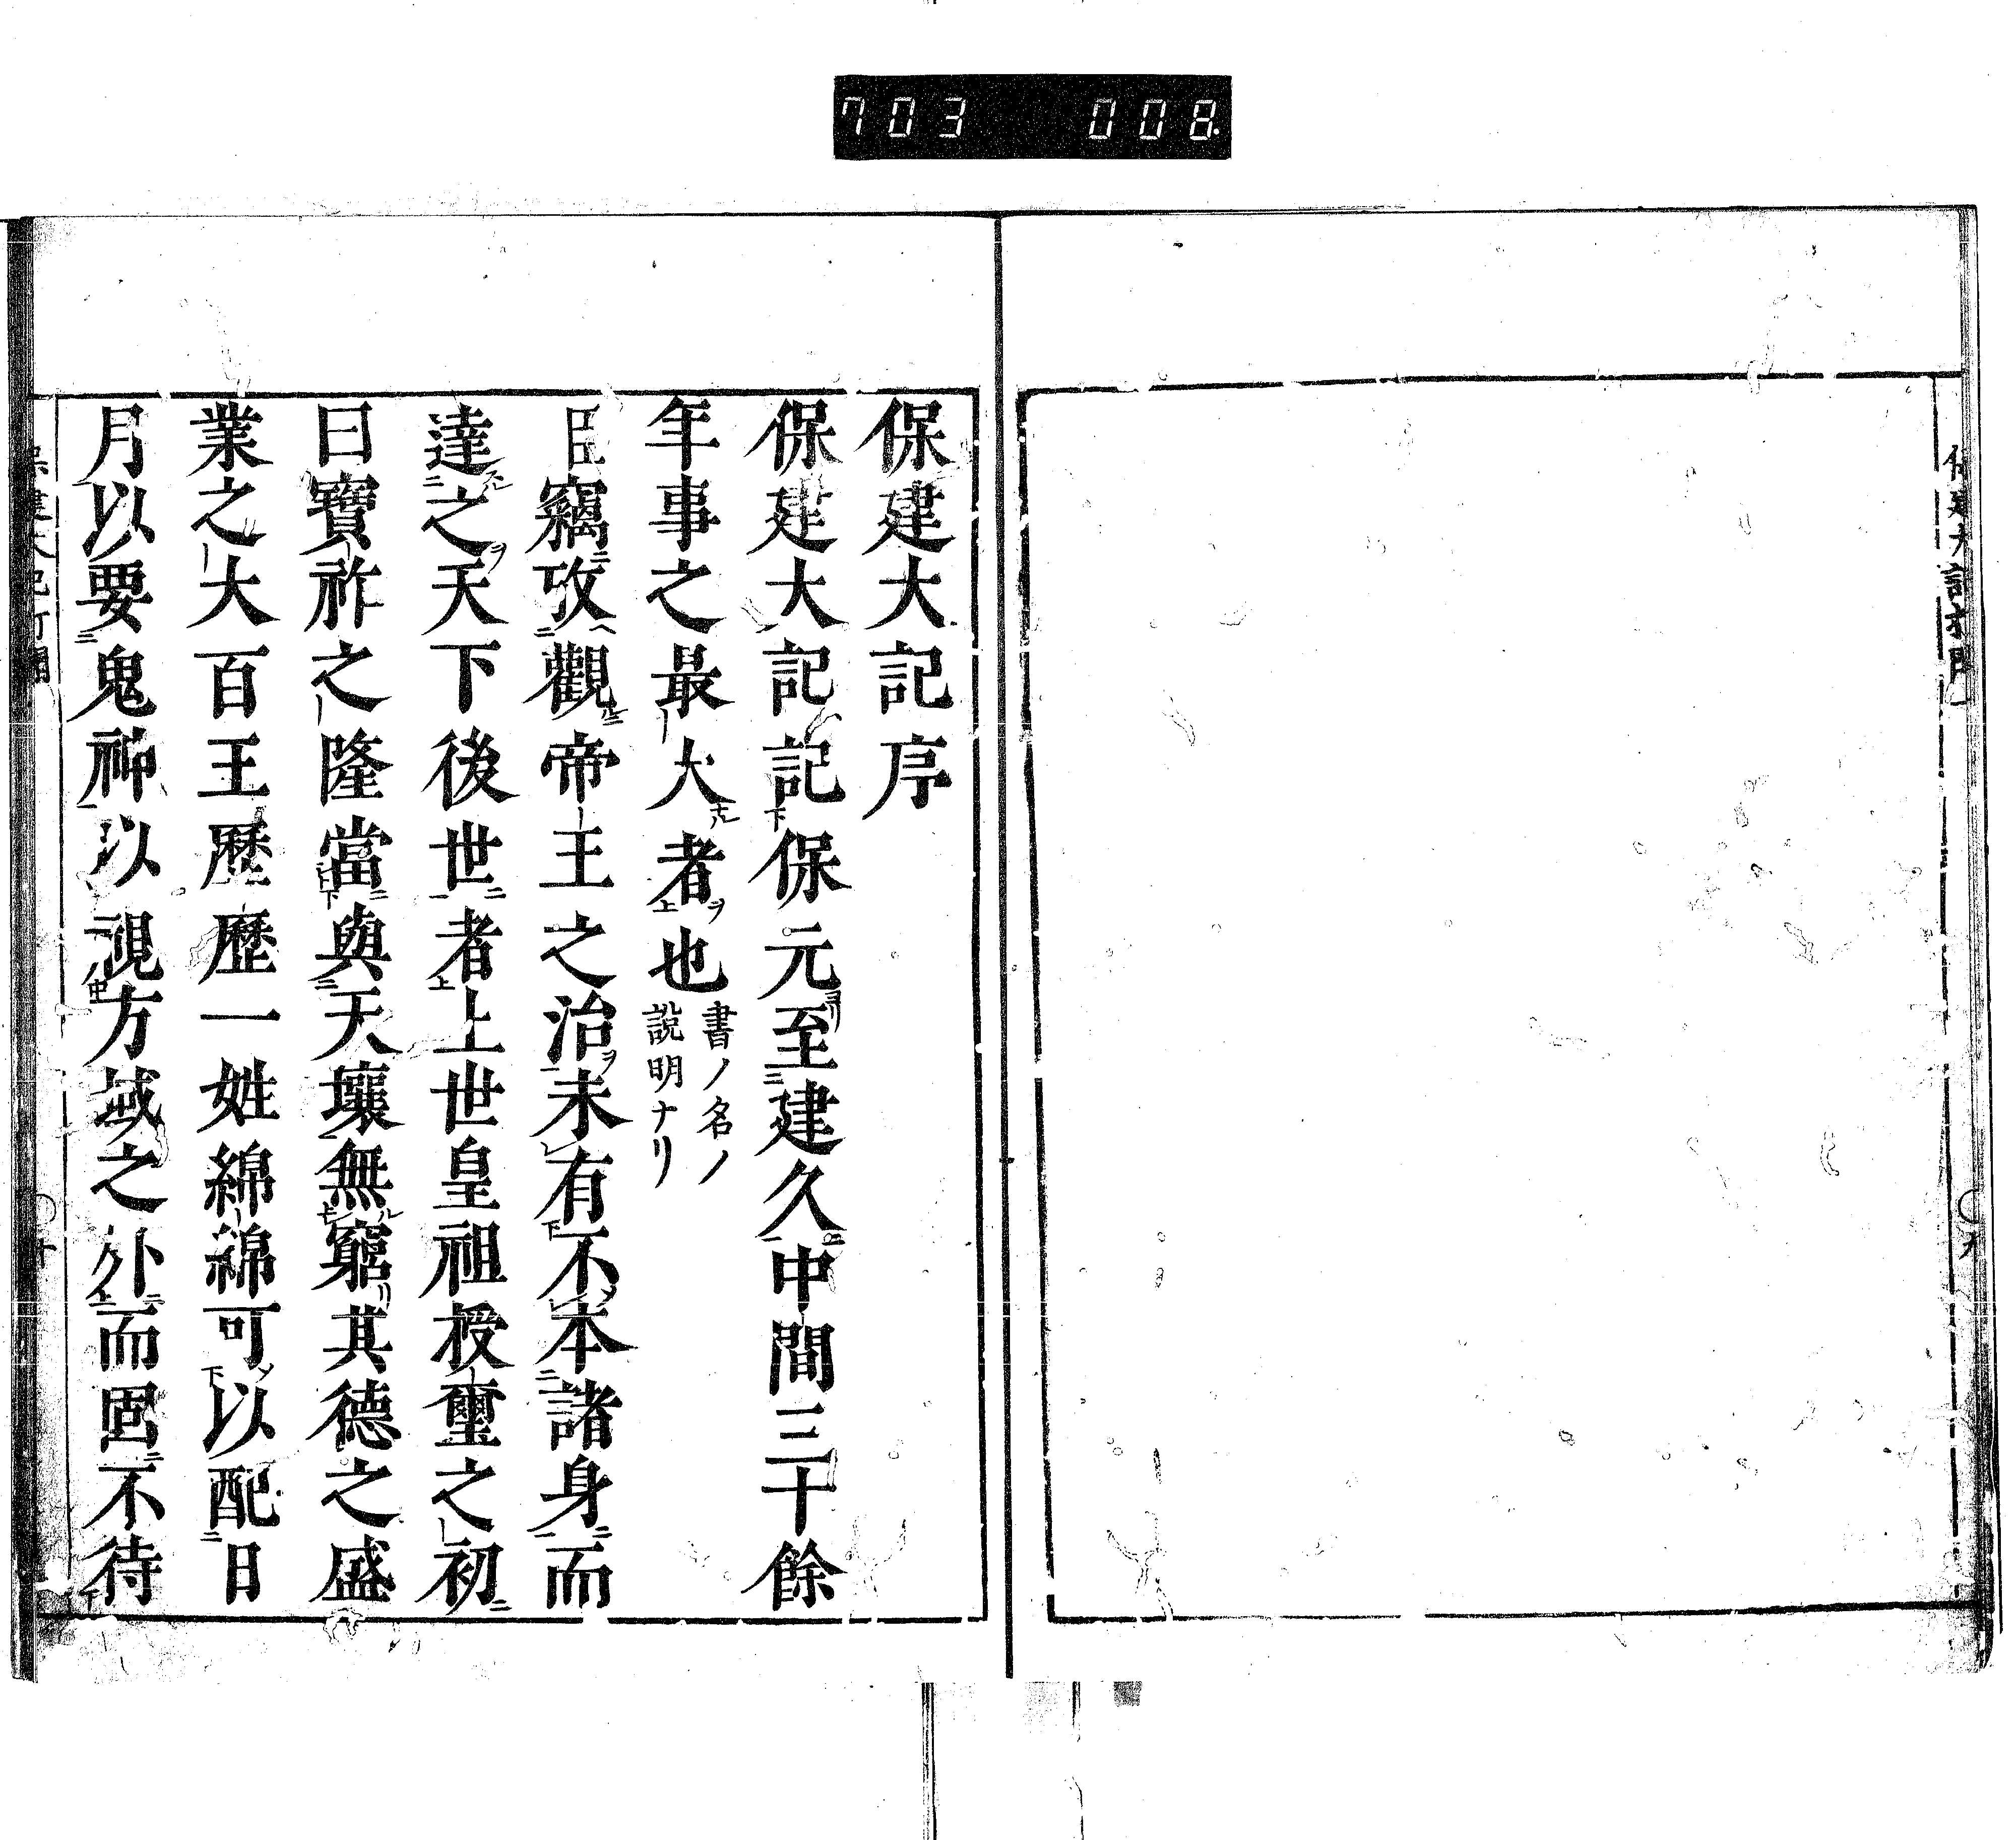 703 008
保建大記序
保建大記記保元至建久中間三十餘
年事之最大者也
書ノ名ノ
說明ナリ
臣竊攷觀帝王之治未有不本諸身而
達之天下後世者上世皇祖授璽之初
曰寶祚之隆當與天壤無窮其德之盛
業之大百王歷歷一姓綿綿可以配日
月以要鬼神以視方域之外而固不待